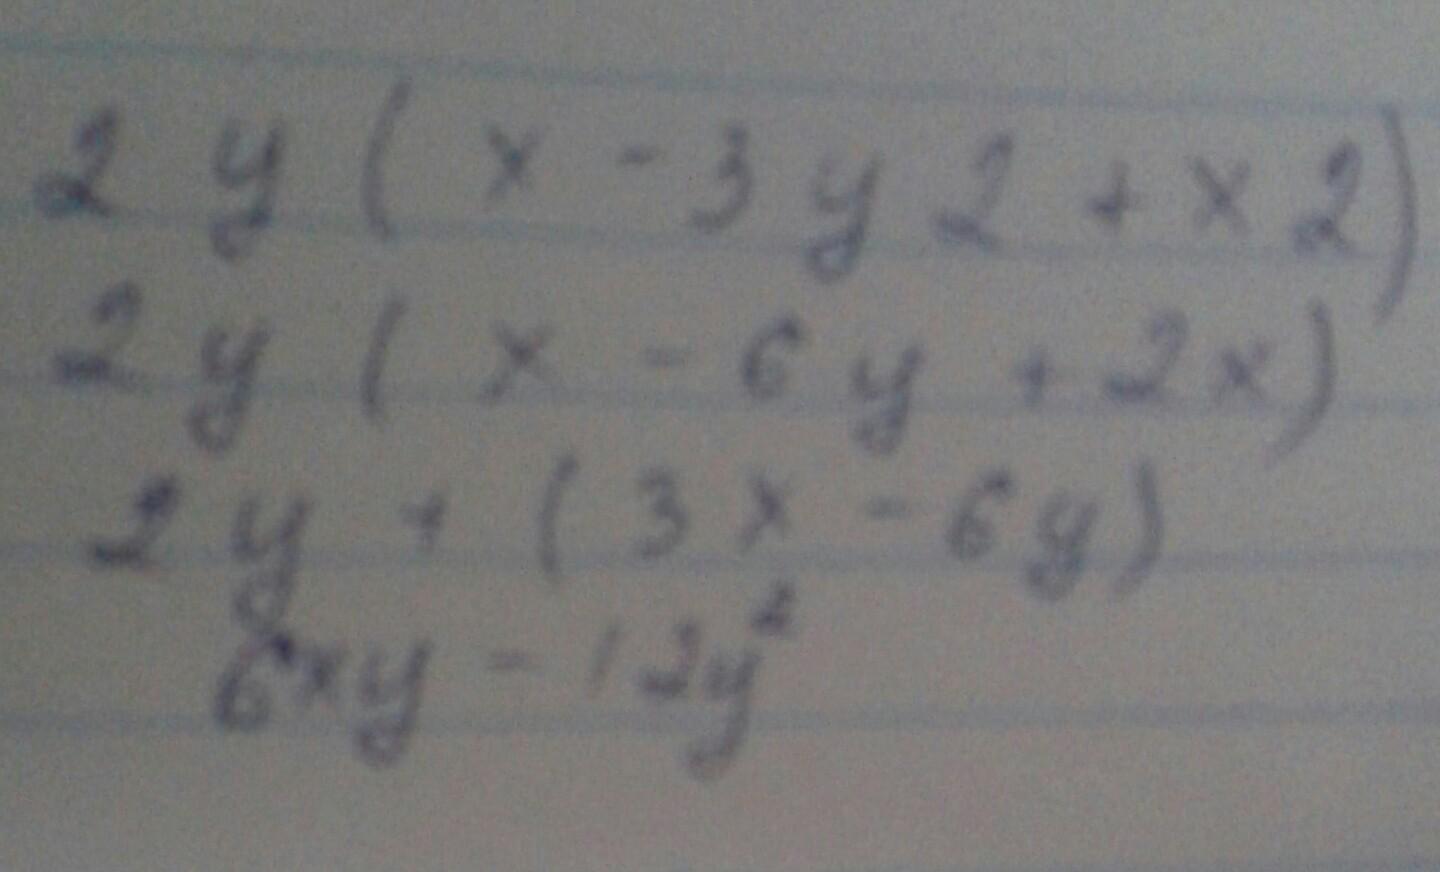 2y(x-3y2+x2)
2y(x-6y+2x)
2y+(3x-6y)
6xy-12y²